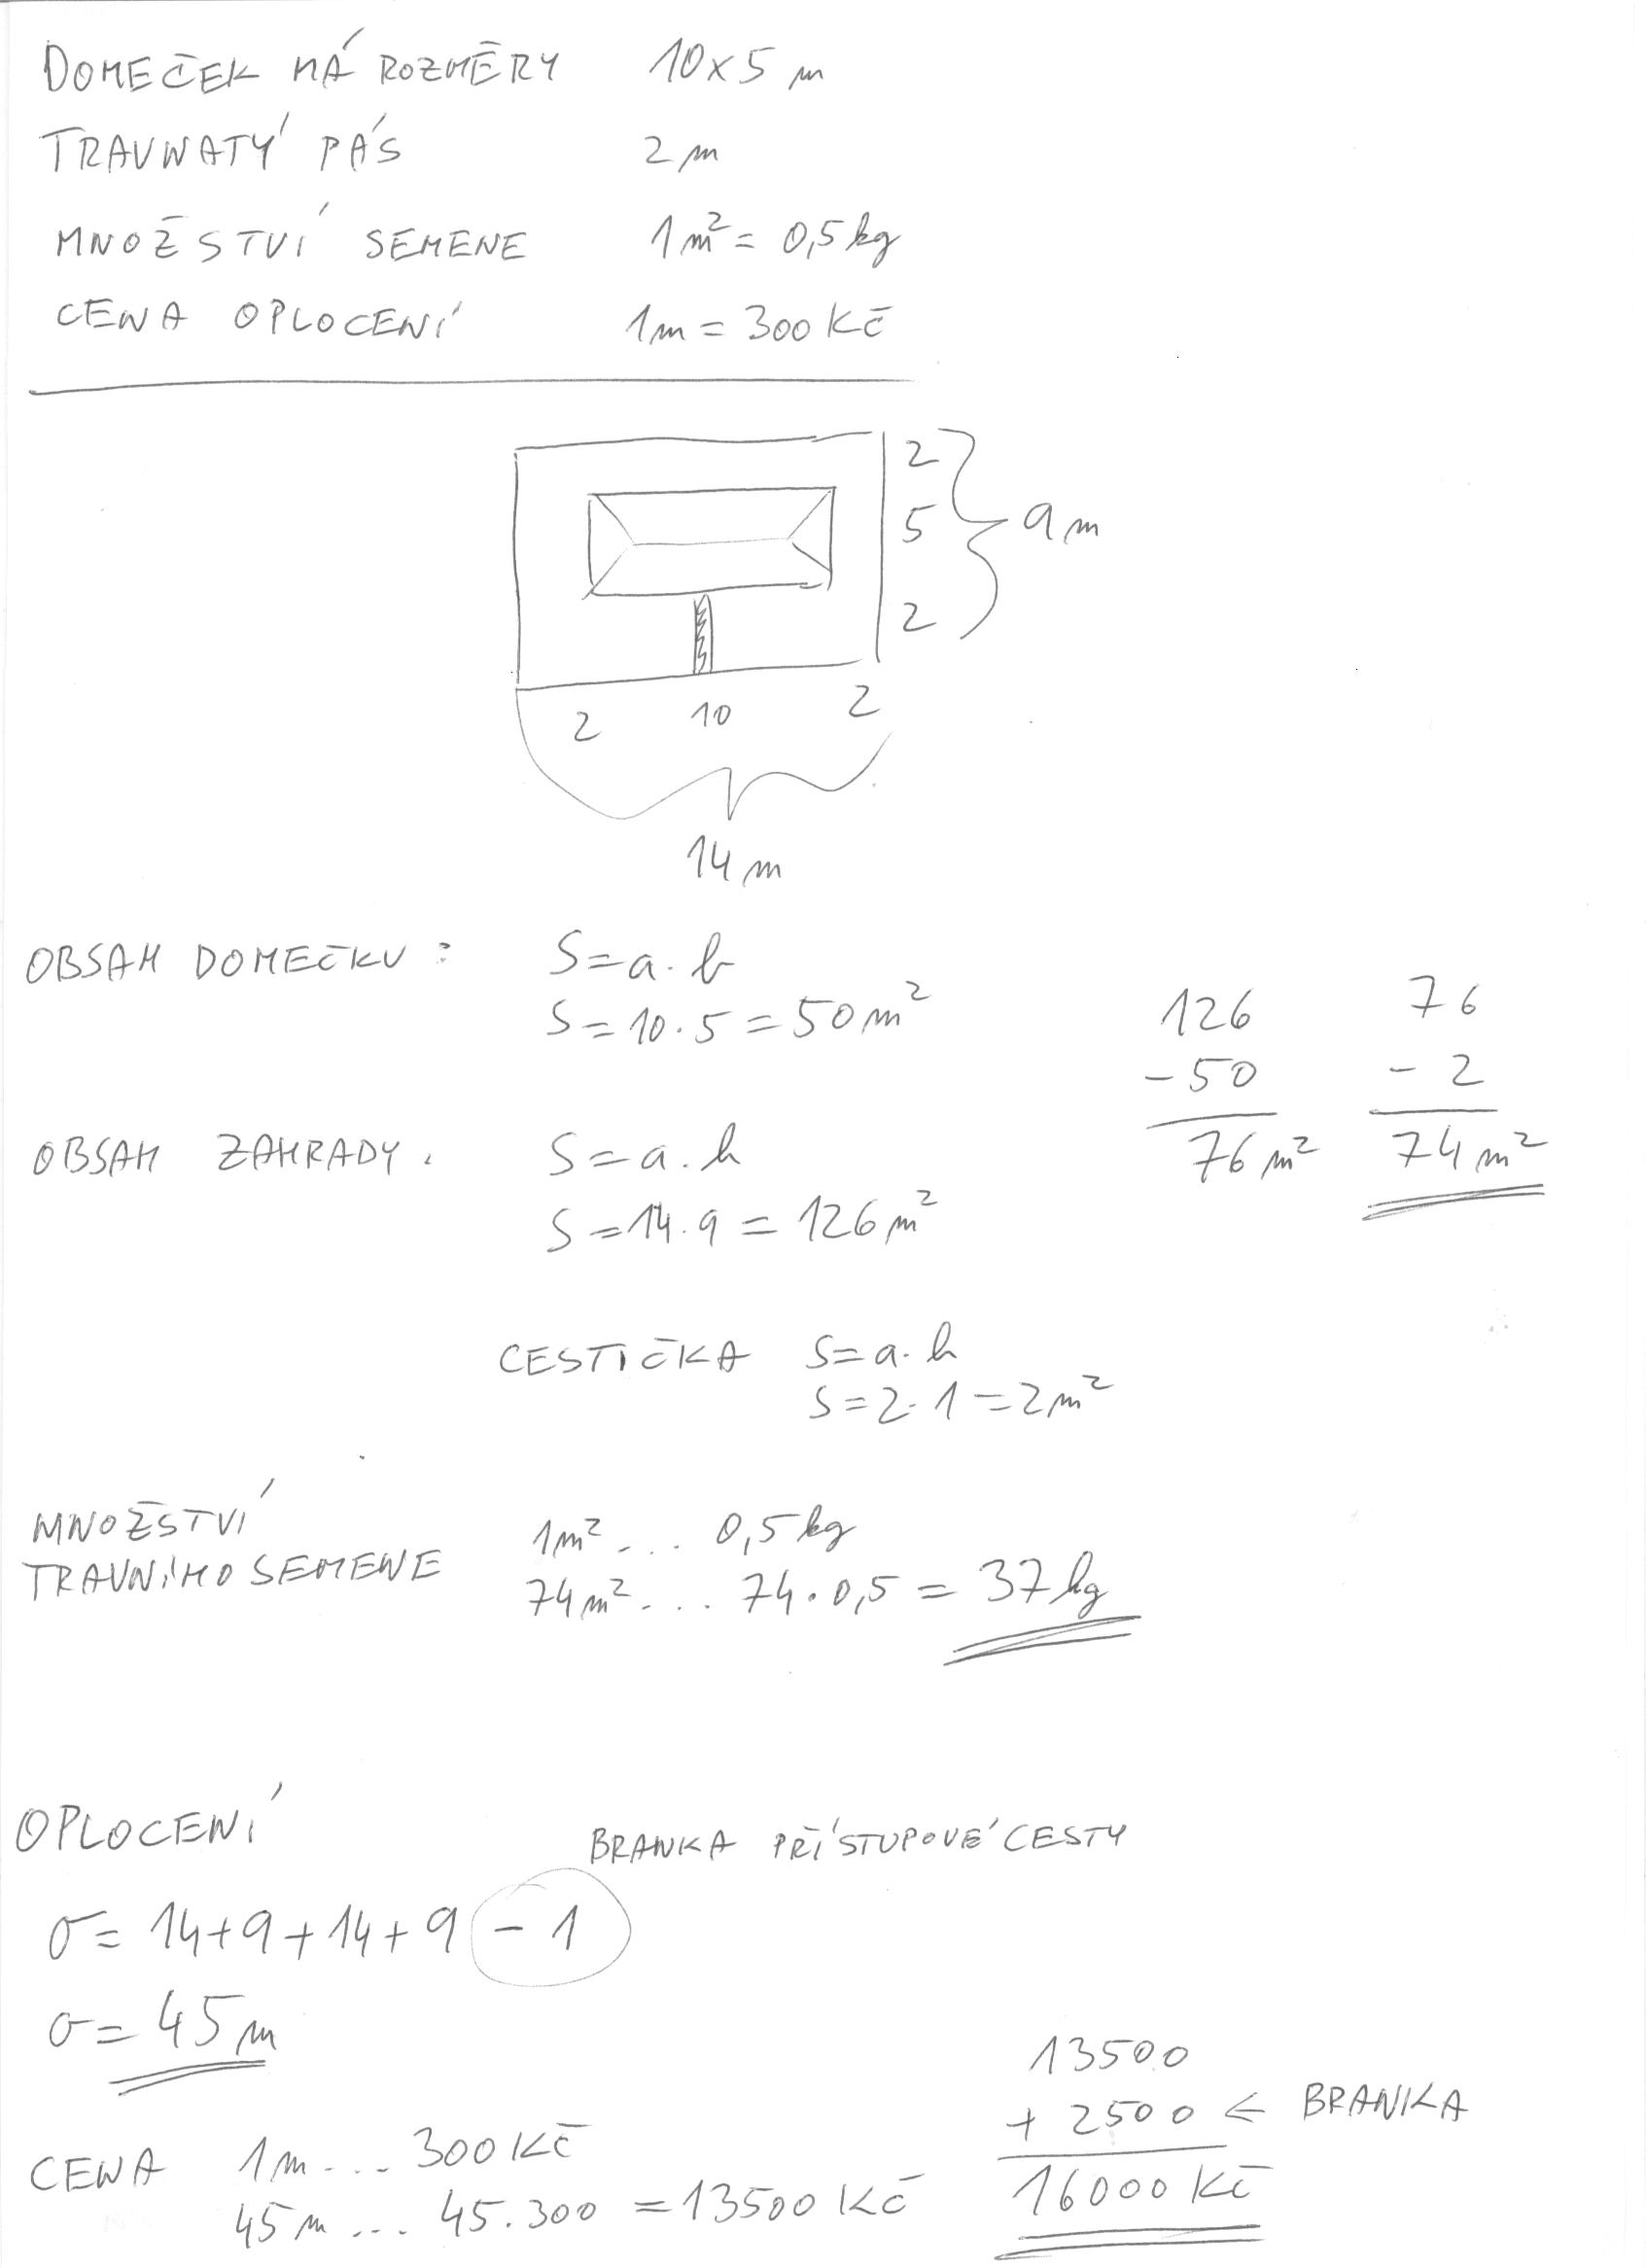 DOMEČEK MÁ ROZMĚRY 10x5 m
TRAVNATÝ PÁS 2 m
MNOŽSTVÍ SEMENE 1 m² = 0,5 kg
CENA OPLOCENÍ 1 m = 300 Kč
2
5
2
9 m
2 10 2
14 m
OBSAH DOMEČKU : S = a . b
S = 10 . 5 = 50 m²
126
- 50
76 m²
76
- 2
74 m²
OBSAH ZAHRADY . S = a . b
S = 14 . 9 = 126 m²
CESTIČKA S = a . b
S = 2 . 1 = 2 m²
MNOŽSTVÍ
TRAVNÍHO SEMENE
1 m² ... 0,5 kg
74 m² ... 74 . 0,5 = 37 kg
OPLOCENÍ
BRANKA PŘÍSTUPOVÉ CESTY
σ = 14 + 9 + 14 + 9 - 1
σ = 45 m
CENA 1 m ... 300 Kč
45 m ... 45 . 300 = 13500 Kč
13500
+ 2500 ← BRANKA
16000 Kč